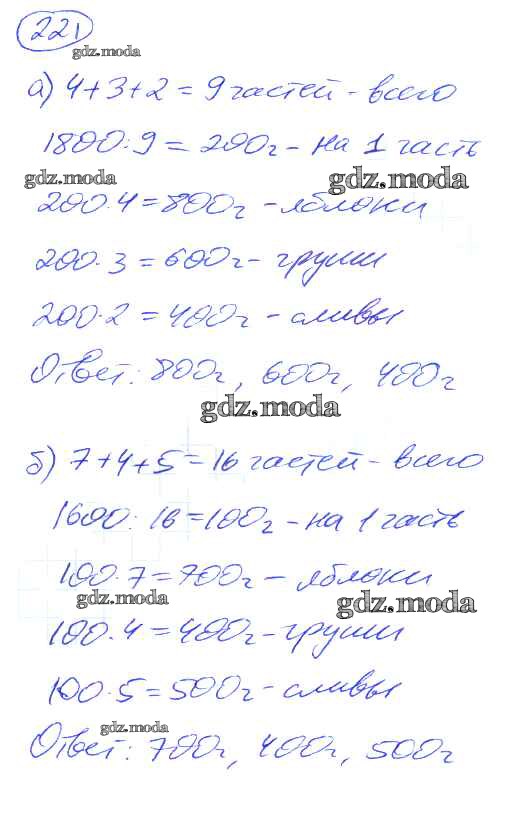 221
gdz.moda
а) 4+3+2 = 9 частей - всего
1800:9 = 200г - на 1 часть
gdz.moda
gdz.moda
200·4 = 800г - яблоки
200·3 = 600г - груши
200·2 = 400г - сливы
Ответ: 800г, 600г, 400г
gdz.moda
б) 7+4+5 = 16 частей - всего
1600:16 = 100г - на 1 часть
100·7 = 700г - яблоки
gdz.moda
gdz.moda
100·4 = 400г - груши
100·5 = 500г - сливы
gdz.moda
Ответ: 700г, 400г, 500г